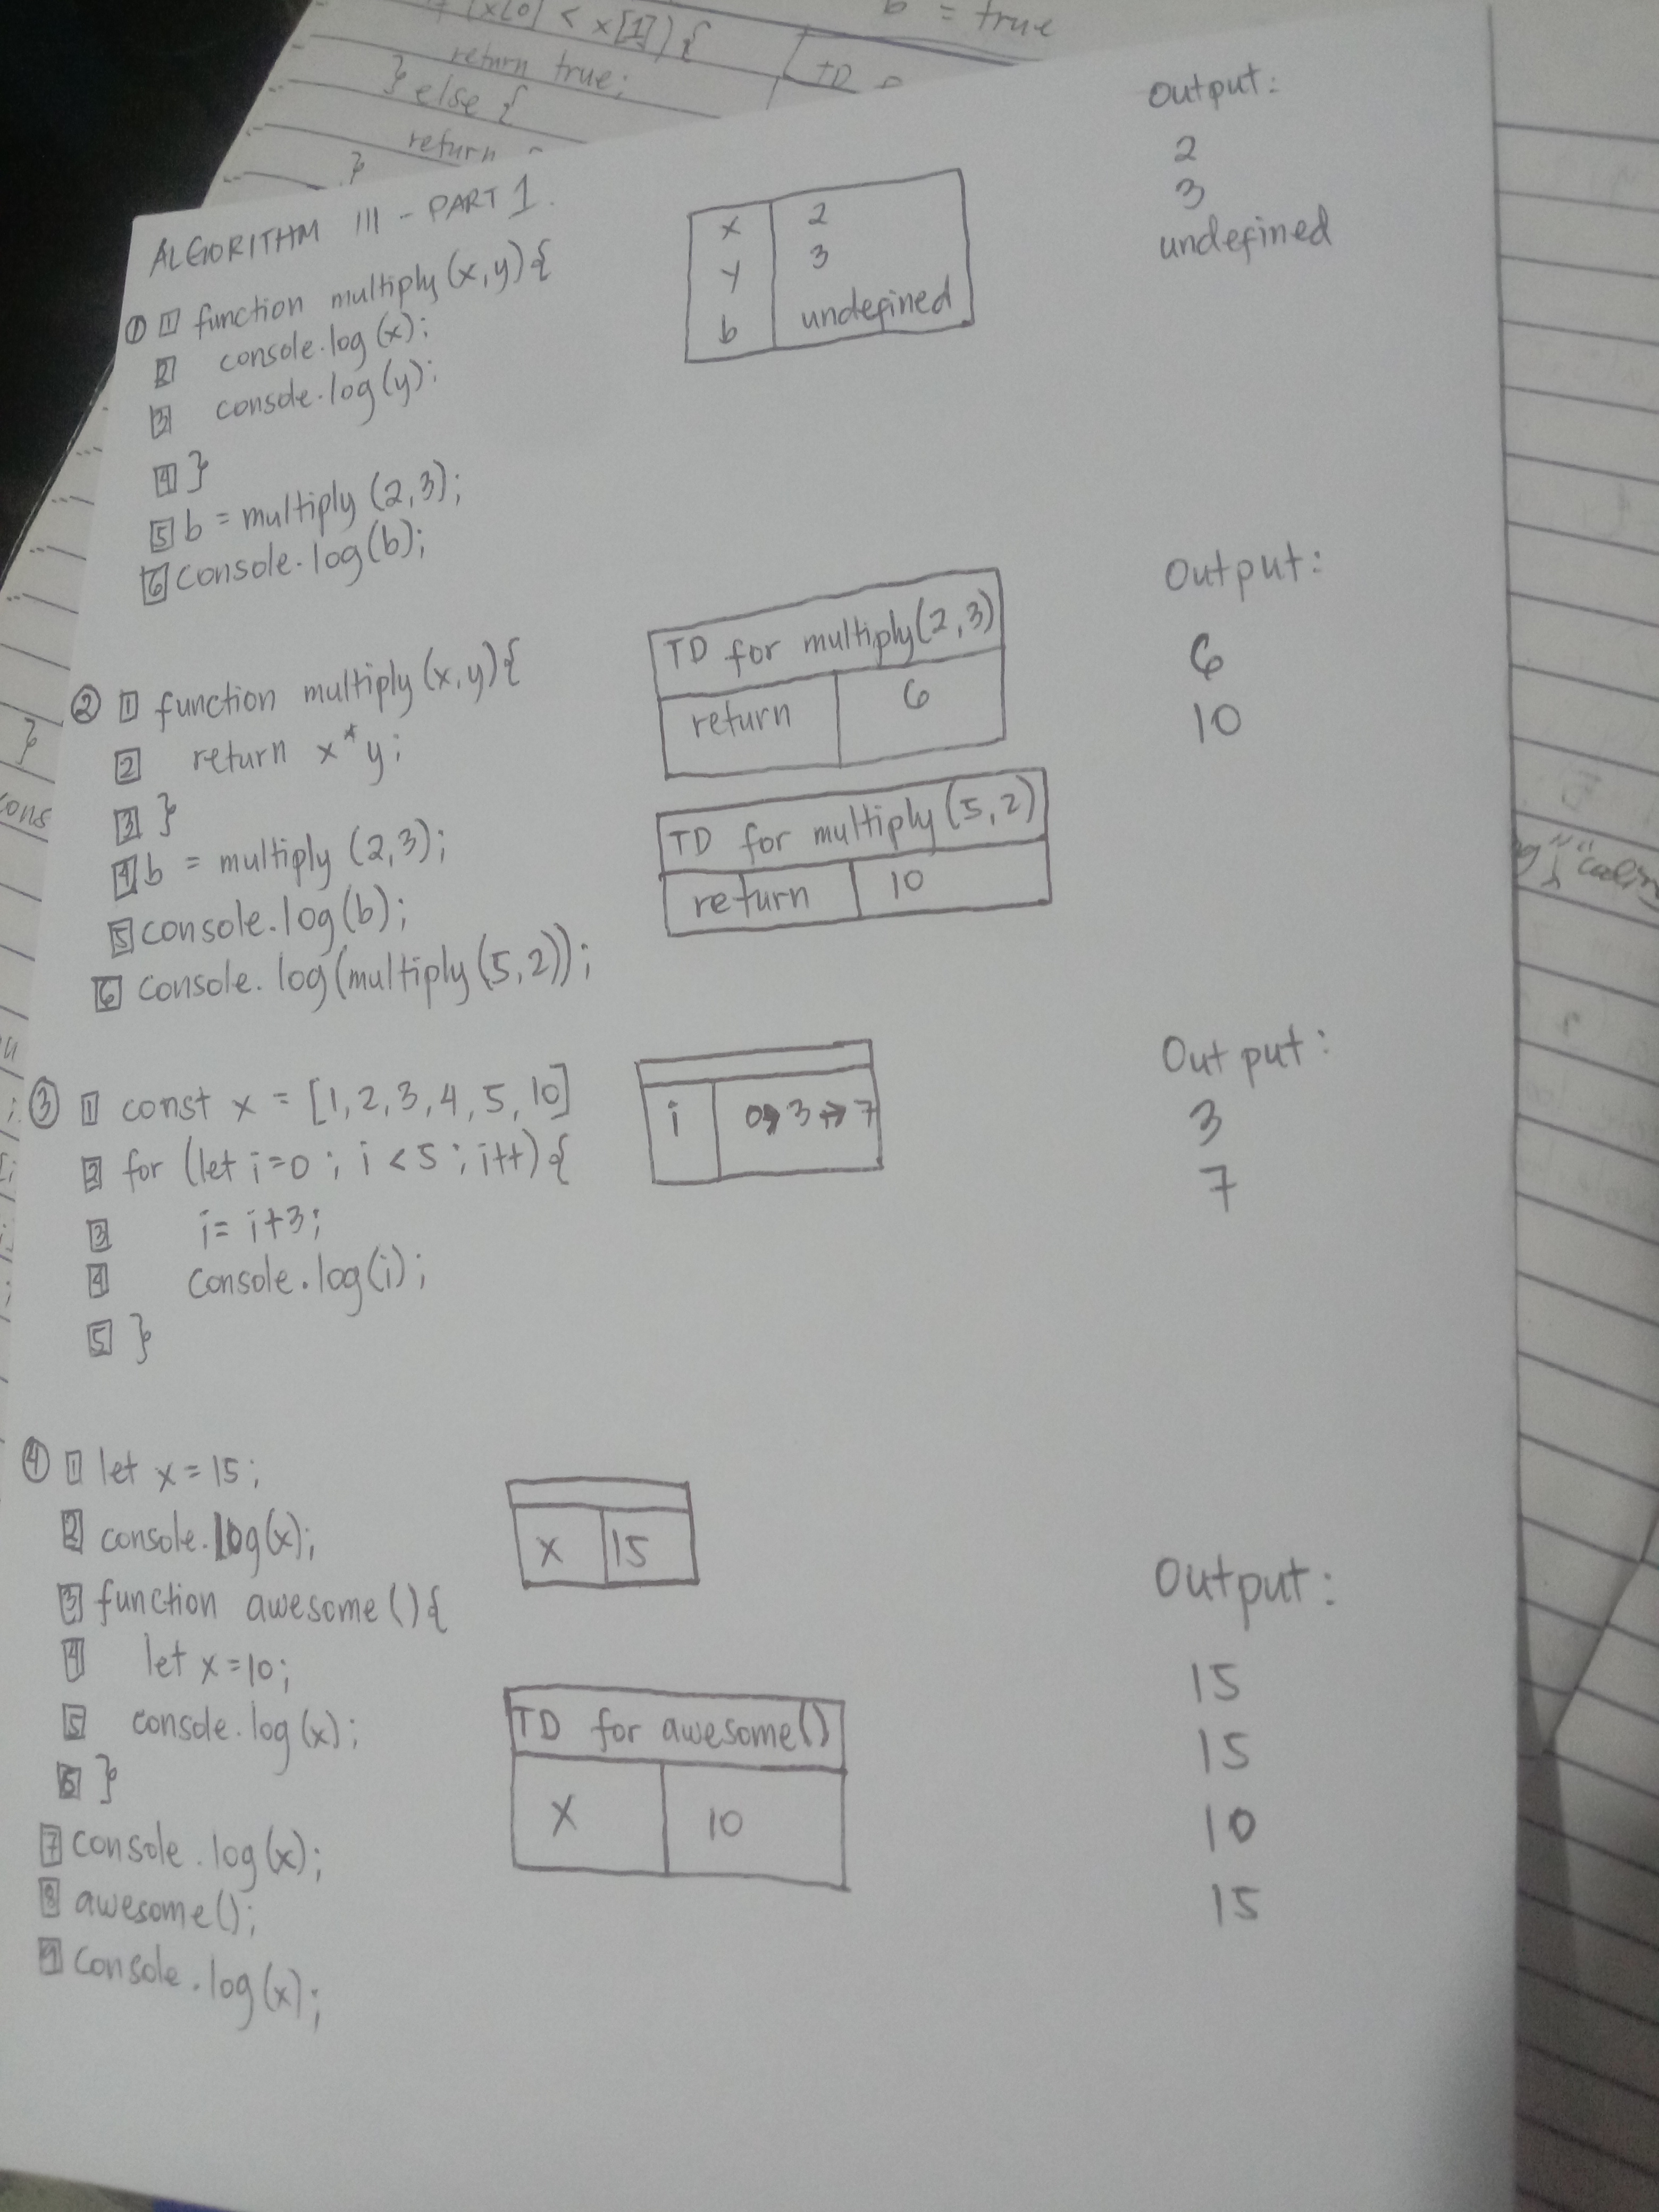 x[0] < x[1]) {
return true;
} else {
return
}
b = true
TD
ALGORITHM III - PART 1.
① 1 function multiply (x,y) {
2 console.log (x);
3 console.log (y);
4 }
5 b = multiply (2,3);
6 console.log (b);
x 2
y 3
b undefined
Output:
2
3
undefined
② 1 function multiply (x,y) {
2 return x*y;
3 }
4 b = multiply (2,3);
5 console.log(b);
6 console.log(multiply (5,2));
TD for multiply(2,3)
return 6
TD for multiply (5,2)
return 10
Output:
6
10
③ 1 const x = [1,2,3,4,5,10]
2 for (let i=0; i<5; i++) {
3 i= i+3;
4 console.log(i);
5 }
i 0→3→7
Output:
3
7
④ 1 let x=15;
2 console.log(x);
3 function awesome () {
4 let x=10;
5 console.log (x);
6 }
7 console.log (x);
8 awesome();
9 console.log (x);
x 15
TD for awesome()
X 10
Output:
15
15
10
15
}
cons